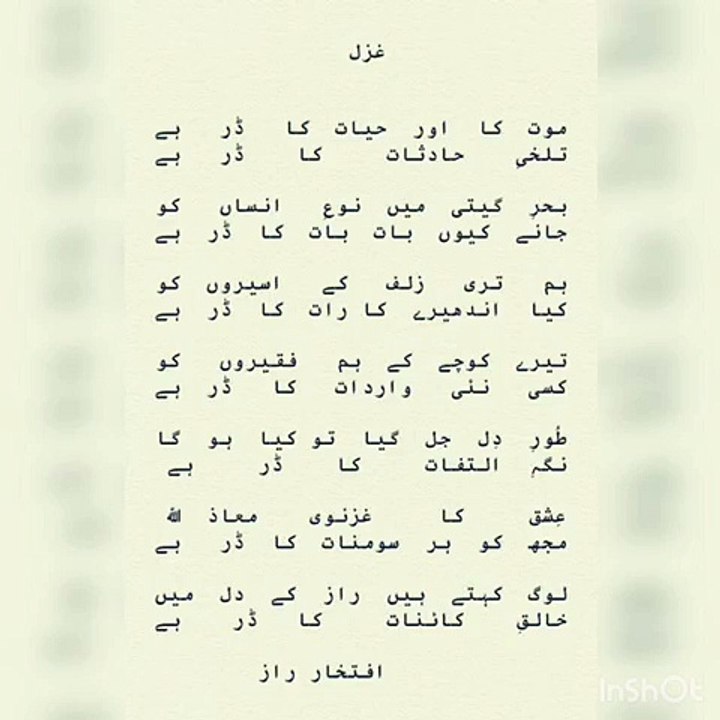 غزل
موت کا اور حیات کا ڈر ہے
تلخیِ حادثات کا ڈر ہے
بحرِ گیتی میں نوعِ انساں کو
جانے کیوں بات بات کا ڈر ہے
ہم تری زلف کے اسیروں کو
کیا اندھیرے کا رات کا ڈر ہے
تیرے کوچے کے ہم فقیروں کو
کسی نئی واردات کا ڈر ہے
طُورِ دِل جل گیا تو کیا ہو گا
نگہِ التفات کا ڈر ہے
عِشق کا غزنوی معاذ ﷲ
مجھ کو ہر سومنات کا ڈر ہے
لوگ کہتے ہیں راز کے دل میں
خالقِ کائنات کا ڈر ہے
افتخار راز
InShOt